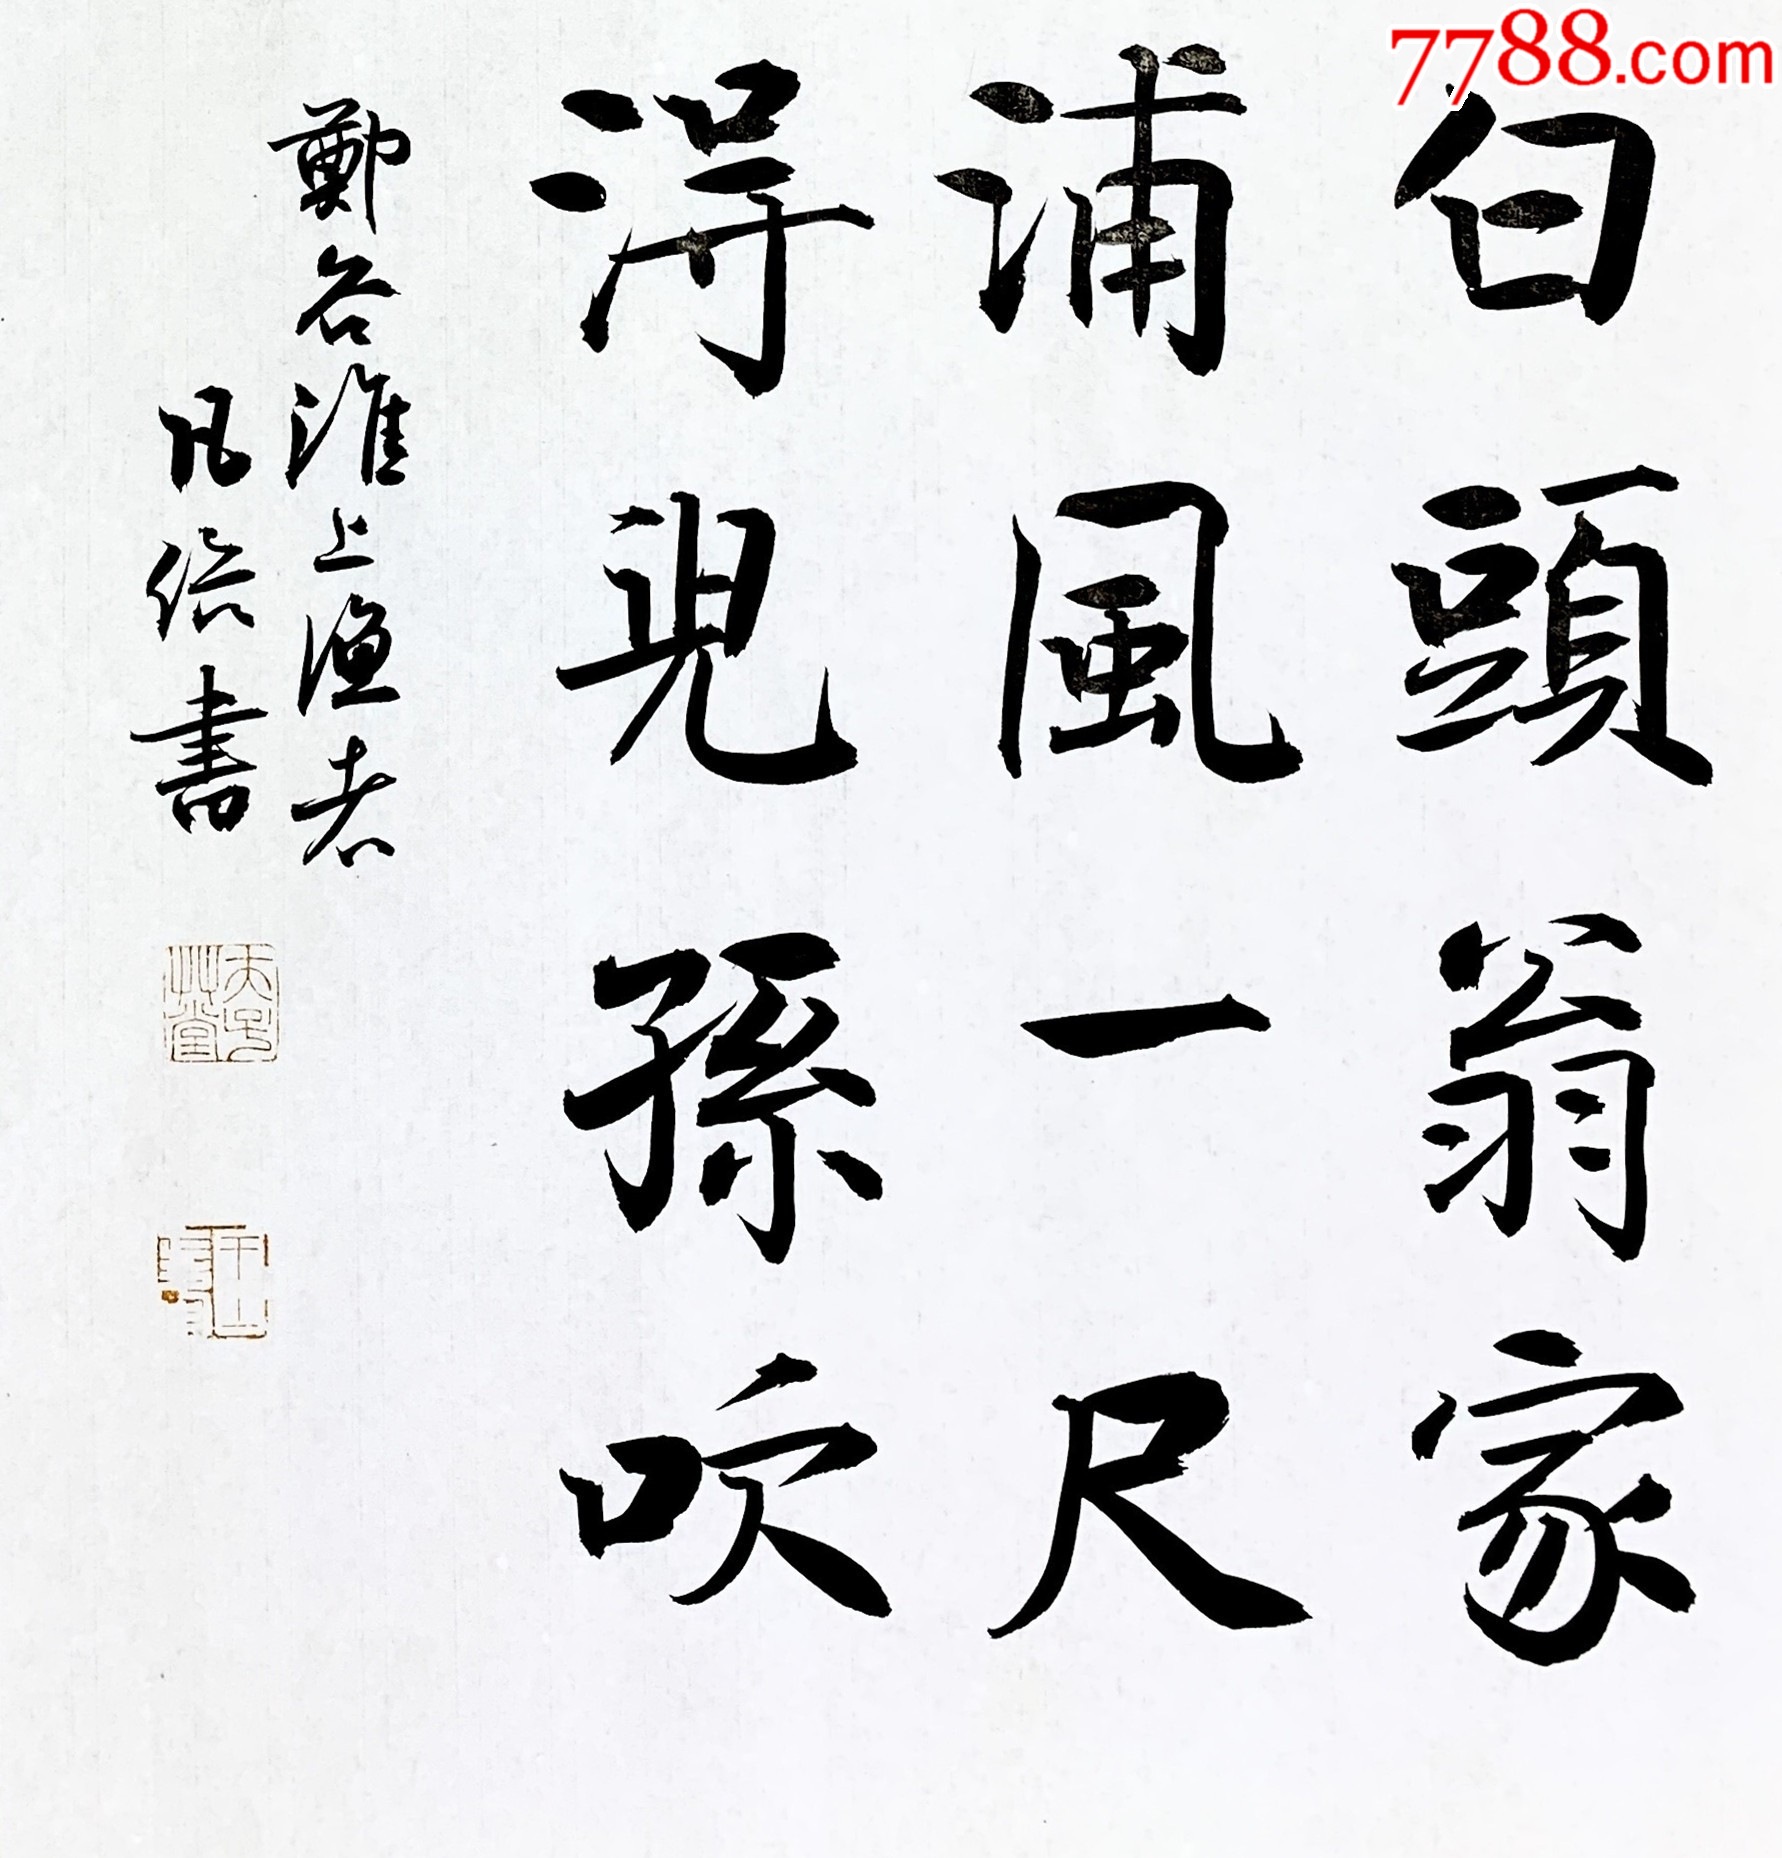 7788.com
白頭翁家
浦風一尺
浔兒孫吹
鄭谷淮上漁者
凡倍書